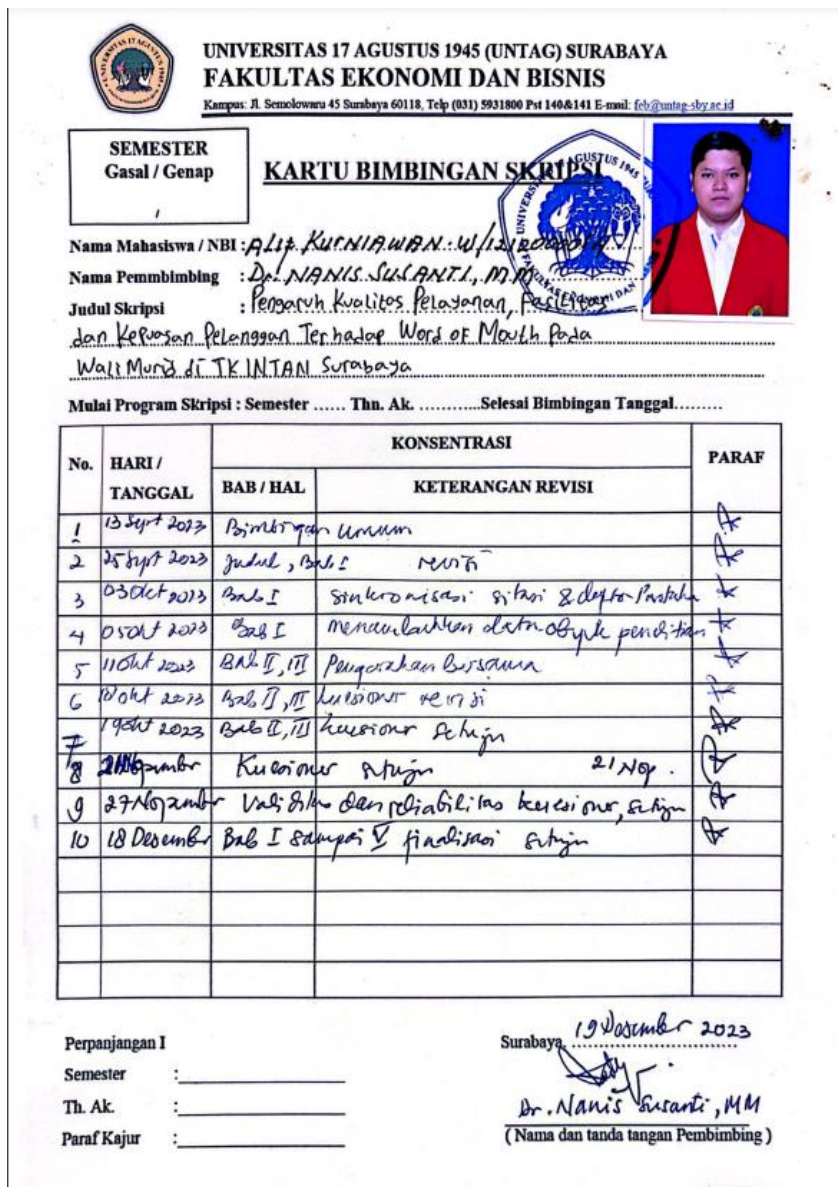 UNIVERSITAS 17 AGUSTUS 1945 (UNTAG) SURABAYA
FAKULTAS EKONOMI DAN BISNIS
Kampus: Jl. Semolowaru 45 Surabaya 60118, Telp (031) 5931800 Pst 140&141 E-mail: feb@untag-sby.ac.id
SEMESTER
Gasal / Genap
/
KARTU BIMBINGAN SKRIPSI
Nama Mahasiswa / NBI : Alif KURNIAWAN. W /
Nama Pemmbimbing : Dr. NANIS SUSANTI, M.M
Judul Skripsi : Pengaruh Kualitas Pelayanan, Fasilitas
dan Kepuasan Pelanggan Terhadap Word of Mouth Pada
Wali Murid di TK INTAN Surabaya
Mulai Program Skripsi : Semester ...... Thn. Ak. ............Selesai Bimbingan Tanggal.........
No. HARI / TANGGAL KONSENTRASI PARAF
BAB / HAL KETERANGAN REVISI
1 13 Sept 2023 Bimbingan Umum
2 25 Sept 2023 Judul, Bab I revisi
3 03 Okt 2023 Bab I sinkronisasi sitasi & daftar Pustaka
4 05 Okt 2023 Bab I menambahkan data obyek penelitian
5 11 Okt 2023 Bab II, III Pengarahan Bersama
6 Okt 2023 Bab II, III kuesioner revisi
7 19 Okt 2023 Bab II, III kuesioner setuju
8 21 Nopember Kuesioner setuju 21 Nop.
9 27 Nopember Validitas dan reliabilitas kuesioner, setuju
10 18 Desember Bab I sampai V finalisasi setuju
Perpanjangan I
Semester :
Th. Ak. :
Paraf Kajur :
Surabaya, 19 Desember 2023
Dr. Nanis Susanti, MM
( Nama dan tanda tangan Pembimbing )